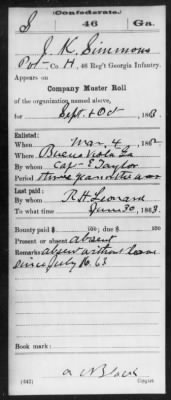 (Confederate.)
S 46 Ga.
J. K. Simmons
Pvt Co. H, 46 Reg't Georgia Infantry.
Appears on
Company Muster Roll
of the organization named above,
for Sept & Oct, 1863.
Enlisted:
When Mar. 4, 1862
Where Buena Vista Ga
By whom Capt E Taylor
Period three years or the war
Last paid:
By whom R. H. Leonard
To what time June 30, 1863.
Bounty paid $ 100; due $ 100
Present or absent absent
Remarks absent without leave
since July 16. 63
Book mark:
(642) Copyist.